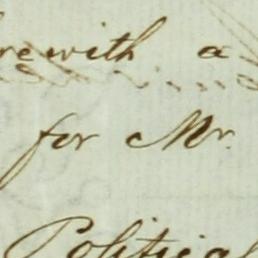 rewith a
for Mr.
Political